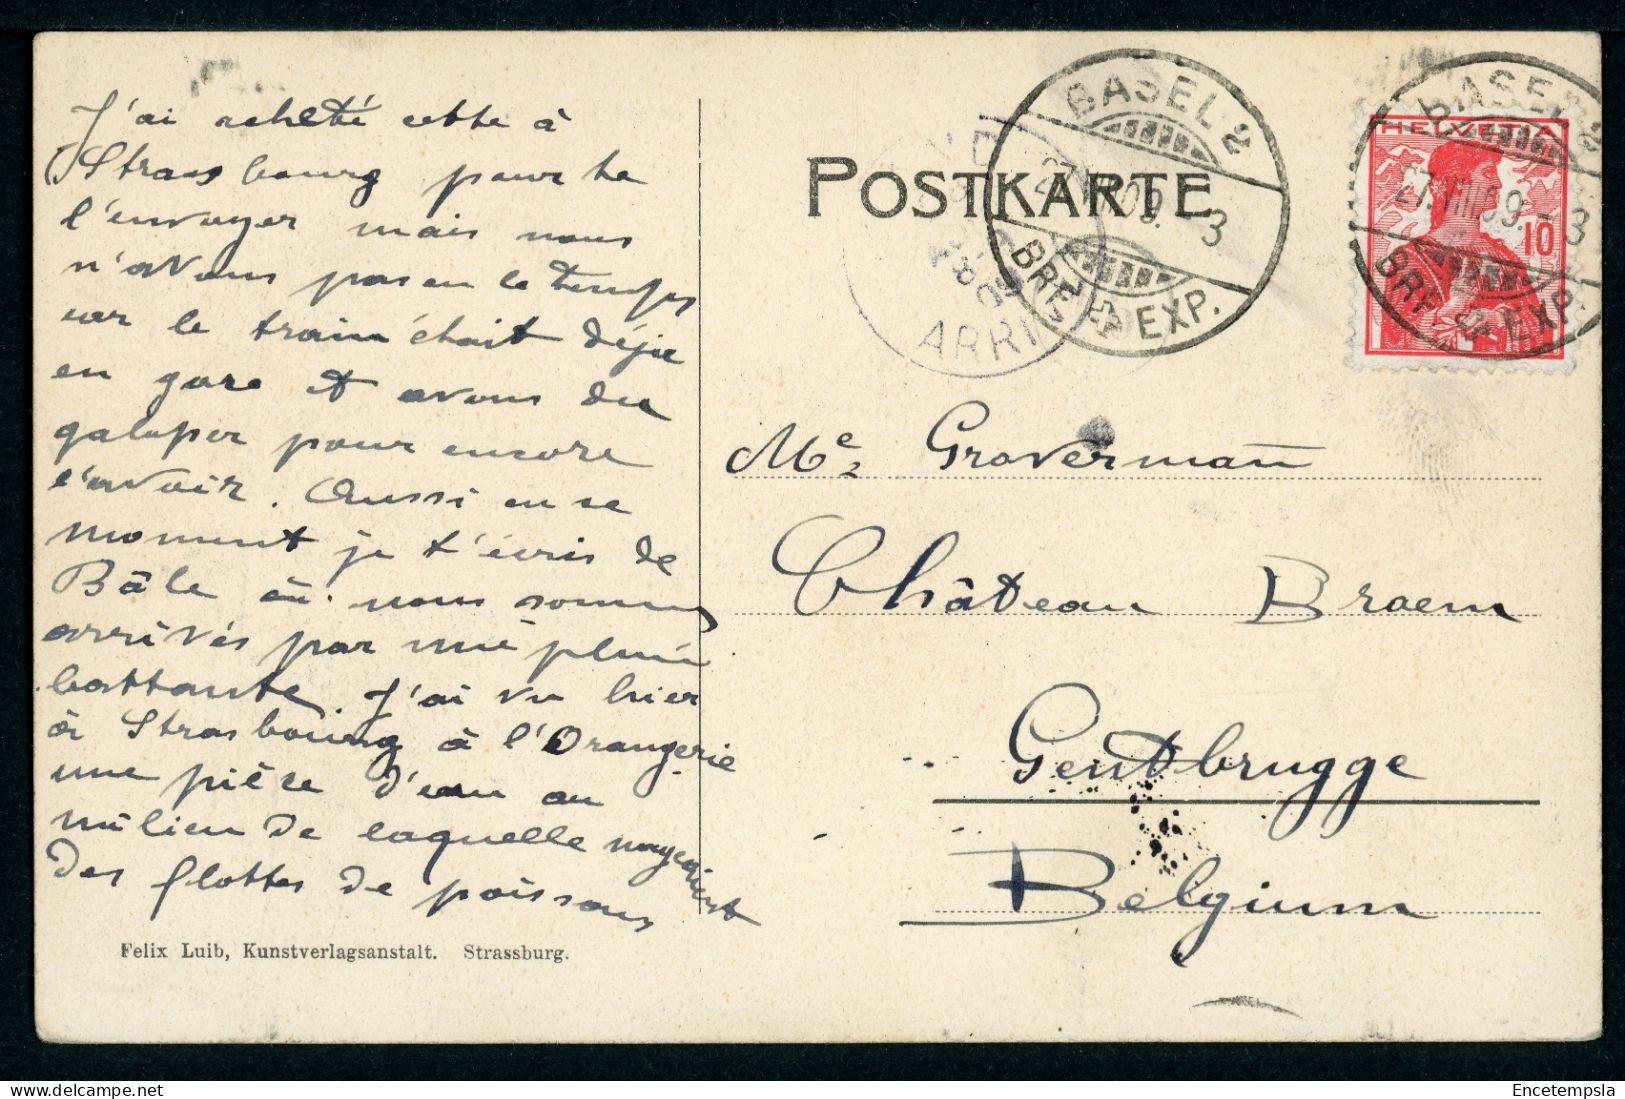 J'ai acheté cette à
Strasbourg pour te
l'envoyer mais nous
n'avons pas eu le temps
car le train était déjà
en gare et avons dû
galoper pour encore
l'avoir. Aussi en ce
moment je t'écris de
Bâle où nous sommes
arrivés par une pluie
battante. J'ai vu hier
à Strasbourg à l'Orangerie
une pièce d'eau au
milieu de laquelle nageaient
des flottes de poissons
Felix Luib, Kunstverlagsanstalt. Strassburg.
POSTKARTE
BASEL 2
27.VIII.09.-3
BRF. EXP.
ARRI
HELVETIA
10
BASEL 2
27.VIII.09.-3
BRF. EXP.
Me Graverman
Château Braem
Gentbrugge
Belgium
Encetempsla